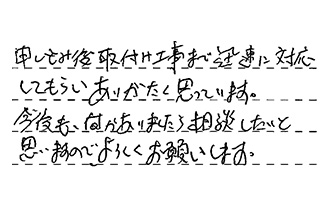 申しこみ後取付け工事まで迅速に対応
してもらいありがたく思っています。
今後も、何かありましたら相談したいと
思いますのでよろしくお願いします。